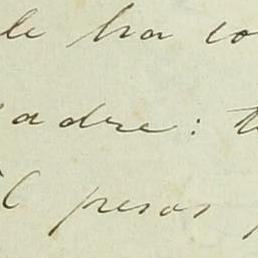 le ha co
adre: t
l pesos